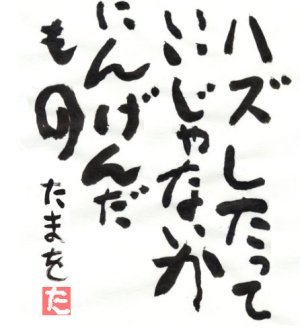 ハズしたって
いいじゃないか
にんげんだ
もの
たまを
た